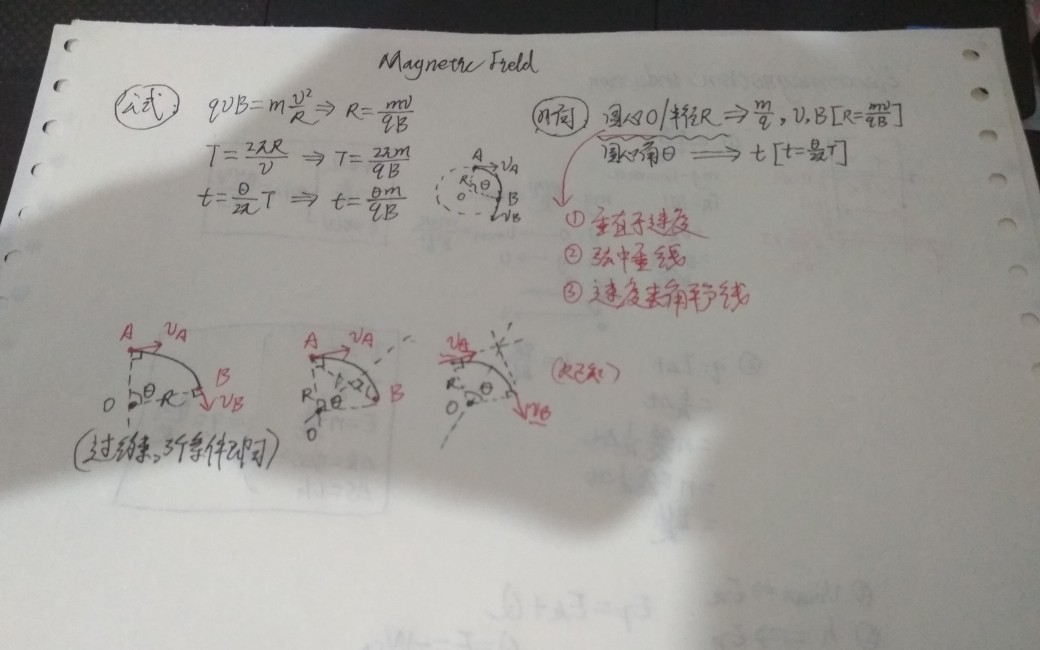 Magnetic Field
公式: qvB=m\frac{v²}{R}⇒ R=\frac{mv}{qB}
T=\frac{2πR}{v} ⇒ T=\frac{2πm}{qB}
t=\frac{θ}{2π}T ⇒ t=\frac{θm}{qB}
A vA
R θ
O B
vB
圆心O/半径R⇒\frac{m}{q},v,B[R=\frac{mv}{qB}]
圆心角θ ⟹ t[t=\frac{θ}{2π}T]
① 垂直于速度
② 弦中垂线
③ 速度夹角平分线
A vA
B
O θ R
vB
(过约束,3个条件即可)
A vA
R θ B
O
vA
R θ
O
vB
(R已知)